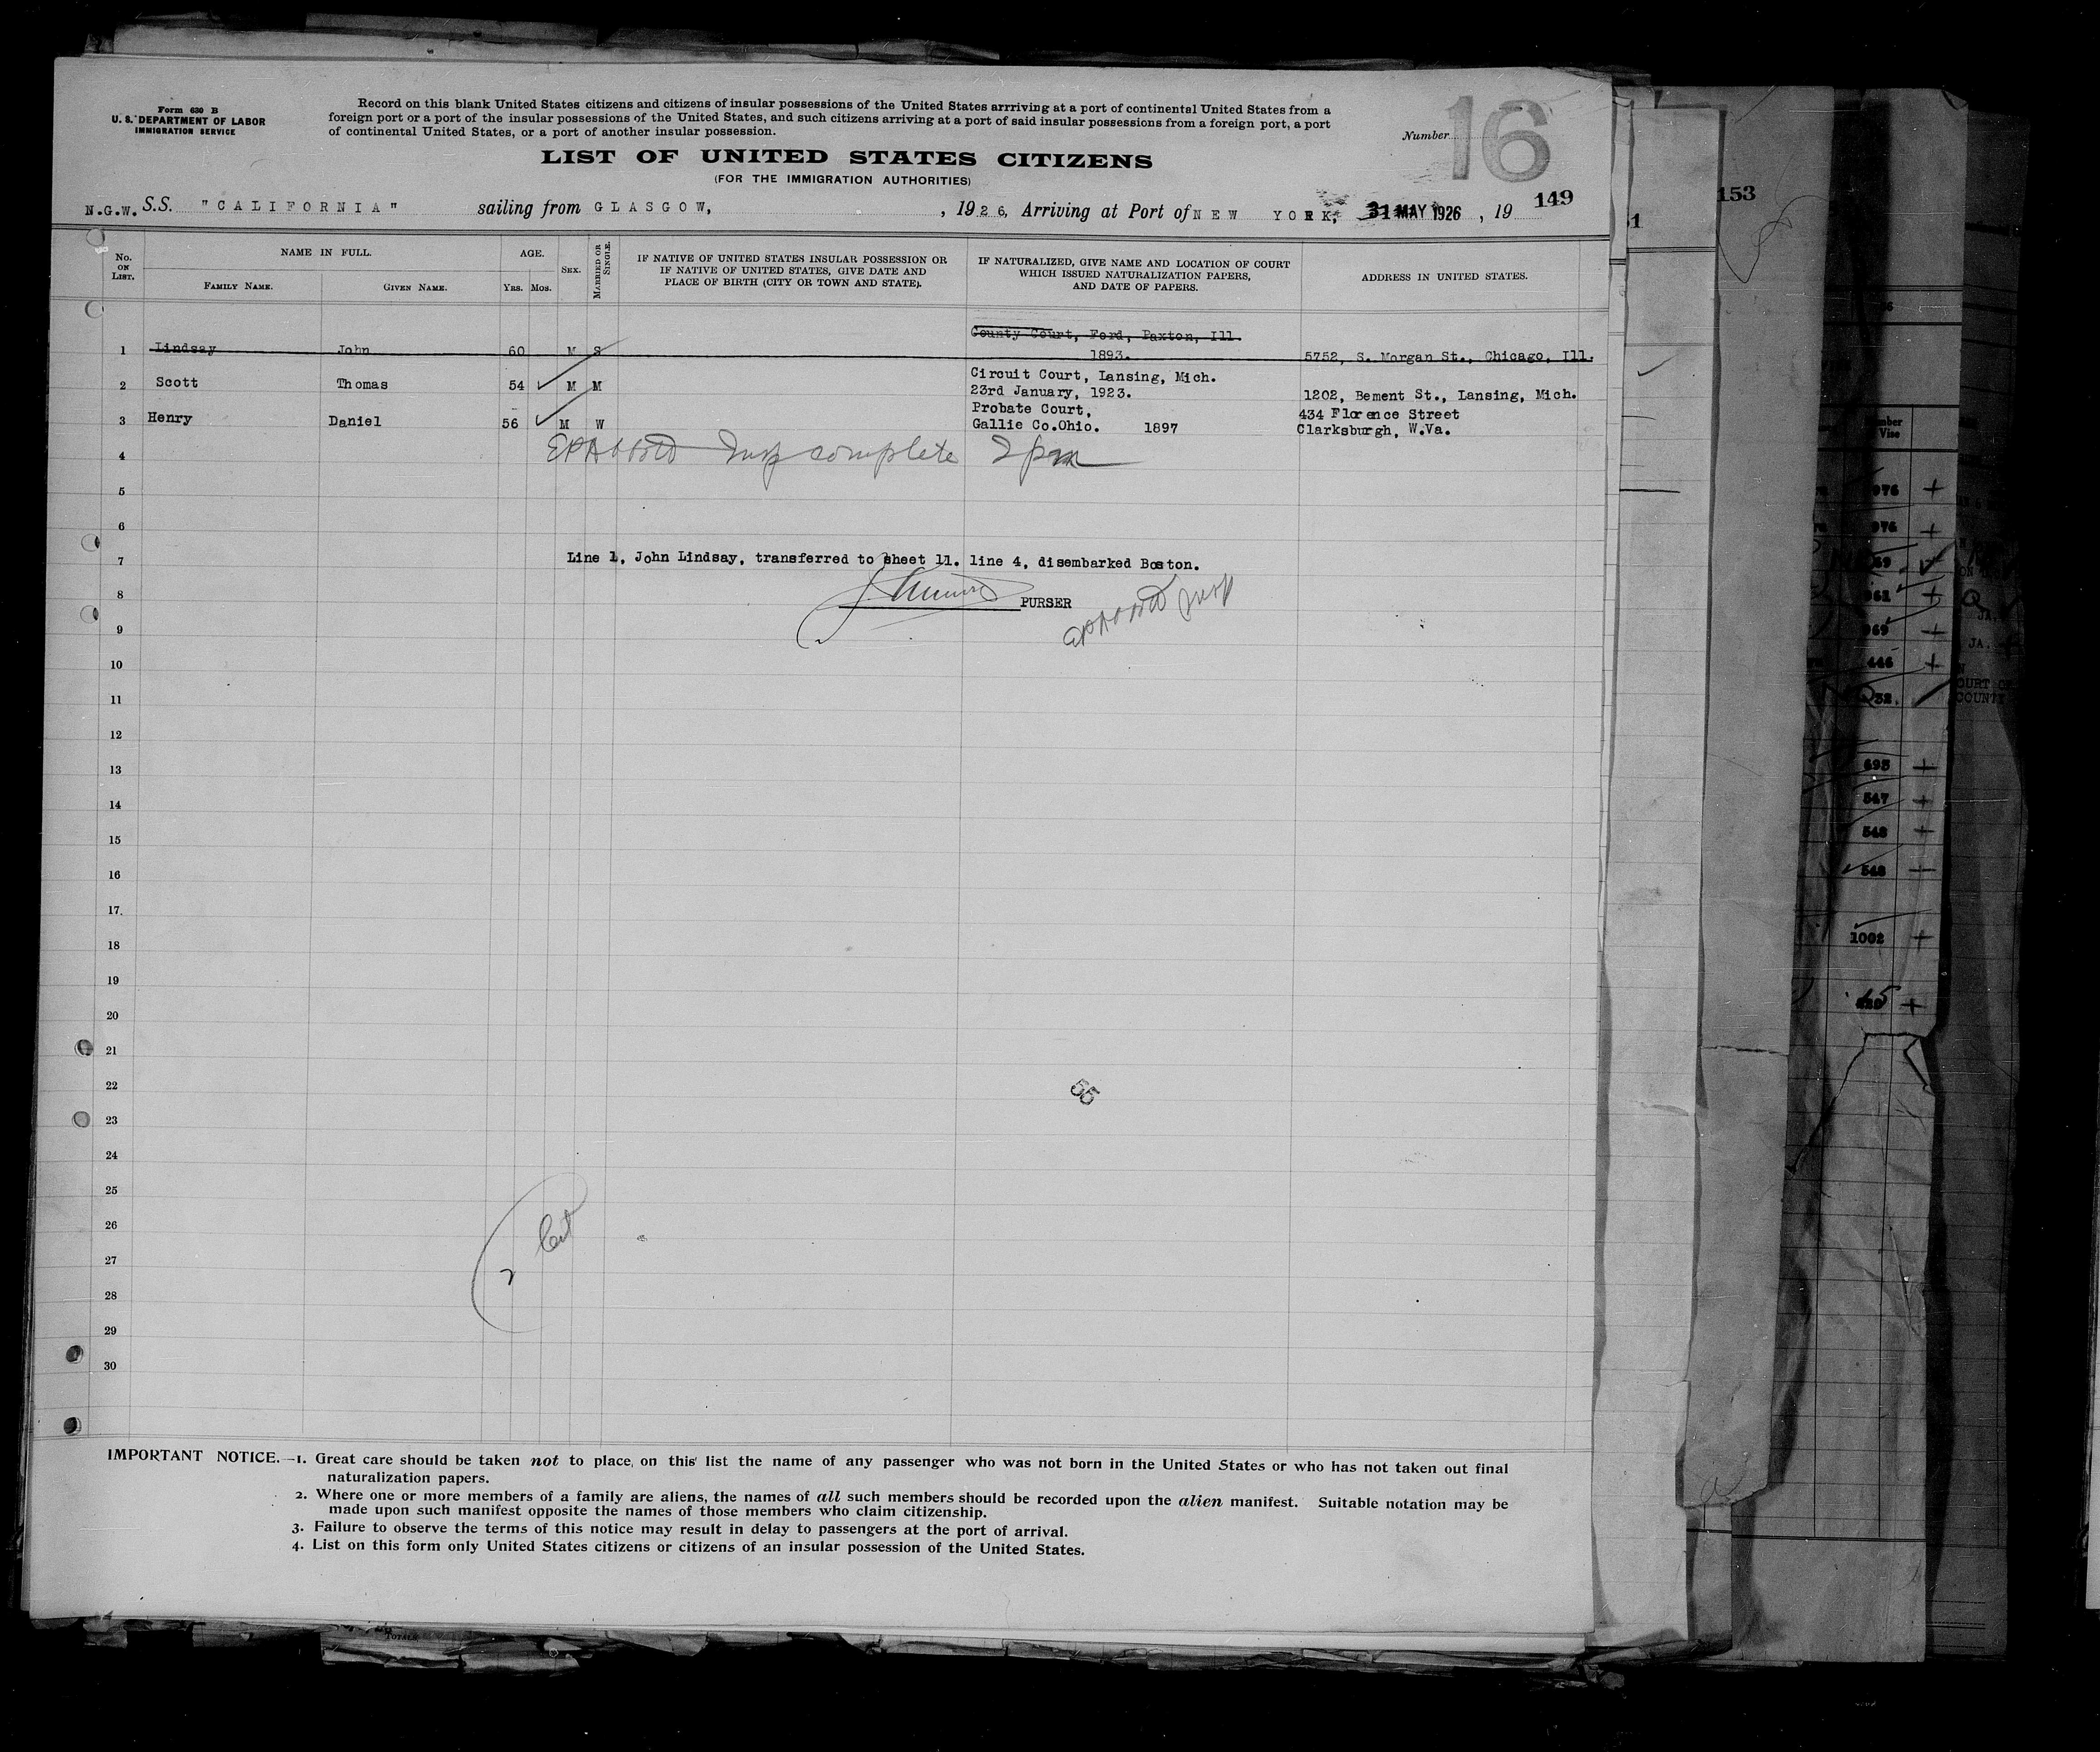 Form 630 B
U. S. DEPARTMENT OF LABOR
IMMIGRATION SERVICE
Record on this blank United States citizens and citizens of insular possessions of the United States arrriving at a port of continental United States from a
foreign port or a port of the insular possessions of the United States, and such citizens arriving at a port of said insular possessions from a foreign port, a port
of continental United States, or a port of another insular possession.
Number 16
LIST OF UNITED STATES CITIZENS
(FOR THE IMMIGRATION AUTHORITIES)
149
N.G.W. S.S. "CALIFORNIA" sailing from GLASGOW, , 1926, Arriving at Port of NEW YORK, 31 MAY 1926 , 19
No. ON LIST.
NAME IN FULL.
FAMILY NAME. GIVEN NAME.
AGE.
YRS. MOS.
SEX.
MARRIED OR SINGLE.
IF NATIVE OF UNITED STATES INSULAR POSSESSION OR
IF NATIVE OF UNITED STATES, GIVE DATE AND
PLACE OF BIRTH (CITY OR TOWN AND STATE).
IF NATURALIZED, GIVE NAME AND LOCATION OF COURT
WHICH ISSUED NATURALIZATION PAPERS,
AND DATE OF PAPERS.
ADDRESS IN UNITED STATES.
County Court, Ford, Paxton, Ill.
1 Lindsay John 60 M S 1893. 5752, S. Morgan St., Chicago, Ill.
Circuit Court, Lansing, Mich.
2 Scott Thomas 54 M M 23rd January, 1923. 1202, Bement St., Lansing, Mich.
Probate Court, 434 Florence Street
3 Henry Daniel 56 M W Gallie Co.Ohio. 1897 Clarksburgh, W.Va.
4 Insp complete 2 pm
5
6
7 Line 1, John Lindsay, transferred to sheet 11. line 4, disembarked Boston.
8 PURSER
9
10
11
12
13
14
15
16
17.
18
19
20
21
22
55
23
24
25
26
27
2 Cit
28
29
30
IMPORTANT NOTICE.—1. Great care should be taken not to place on this list the name of any passenger who was not born in the United States or who has not taken out final
naturalization papers.
2. Where one or more members of a family are aliens, the names of all such members should be recorded upon the alien manifest. Suitable notation may be
made upon such manifest opposite the names of those members who claim citizenship.
3. Failure to observe the terms of this notice may result in delay to passengers at the port of arrival.
4. List on this form only United States citizens or citizens of an insular possession of the United States.
153
976
976
961
969
446
695
547
548
548
1002